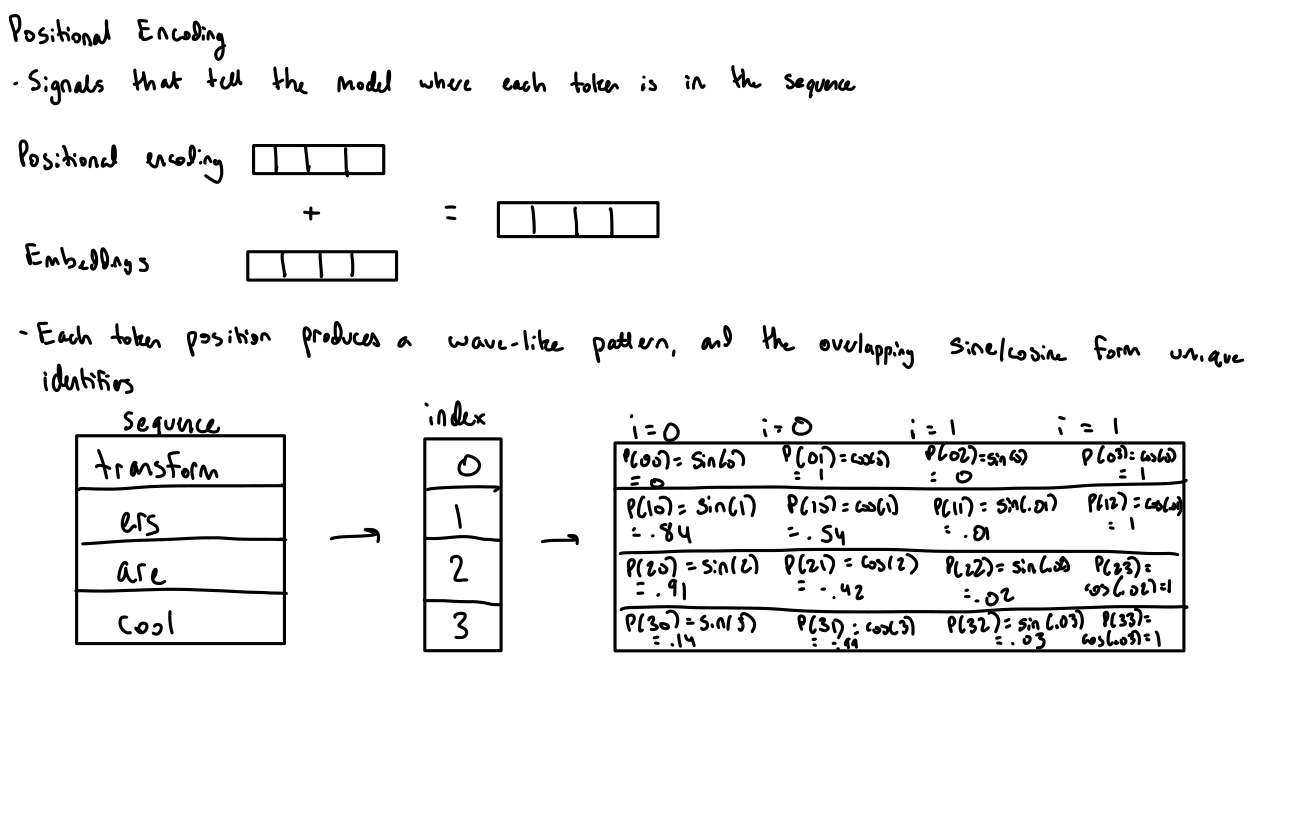 Positional Encoding
- Signals that tell the model where each token is in the sequence
Positional encoding
+ =
Embeddings
- Each token position produces a wave-like pattern, and the overlapping sine/cosine form unique
identifiers
sequence index i=0 i=0 i=1 i=1
transform 0 P(00)=sin(0) P(01)=cos(0) P(02)=sin(0) P(03)=cos(0)
=0 =1 =0 =1
ers 1 P(10)=sin(1) P(10)=cos(1) P(11)=sin(.01) P(12)=cos(.01)
=.84 =.54 =.01 =1
are 2 P(20)=sin(2) P(21)=cos(2) P(22)=sin(.02) P(23)=
=.91 =-.42 =.02 cos(.02)=1
cool 3 P(30)=sin(3) P(31)=cos(3) P(32)=sin(.03) P(33)=
=.14 =-.99 =.03 cos(.03)=1